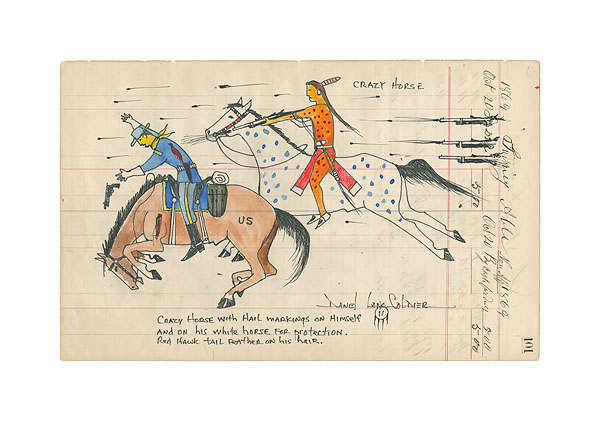 CRAZY HORSE
US
DANIEL LONG SOLDIER
11
CRAZY HORSE with Hail markings on Himself
and on his white horse for protection.
Red Hawk tail feather on his hair.
1869
Oct 20
5.00
1869
5.00
101